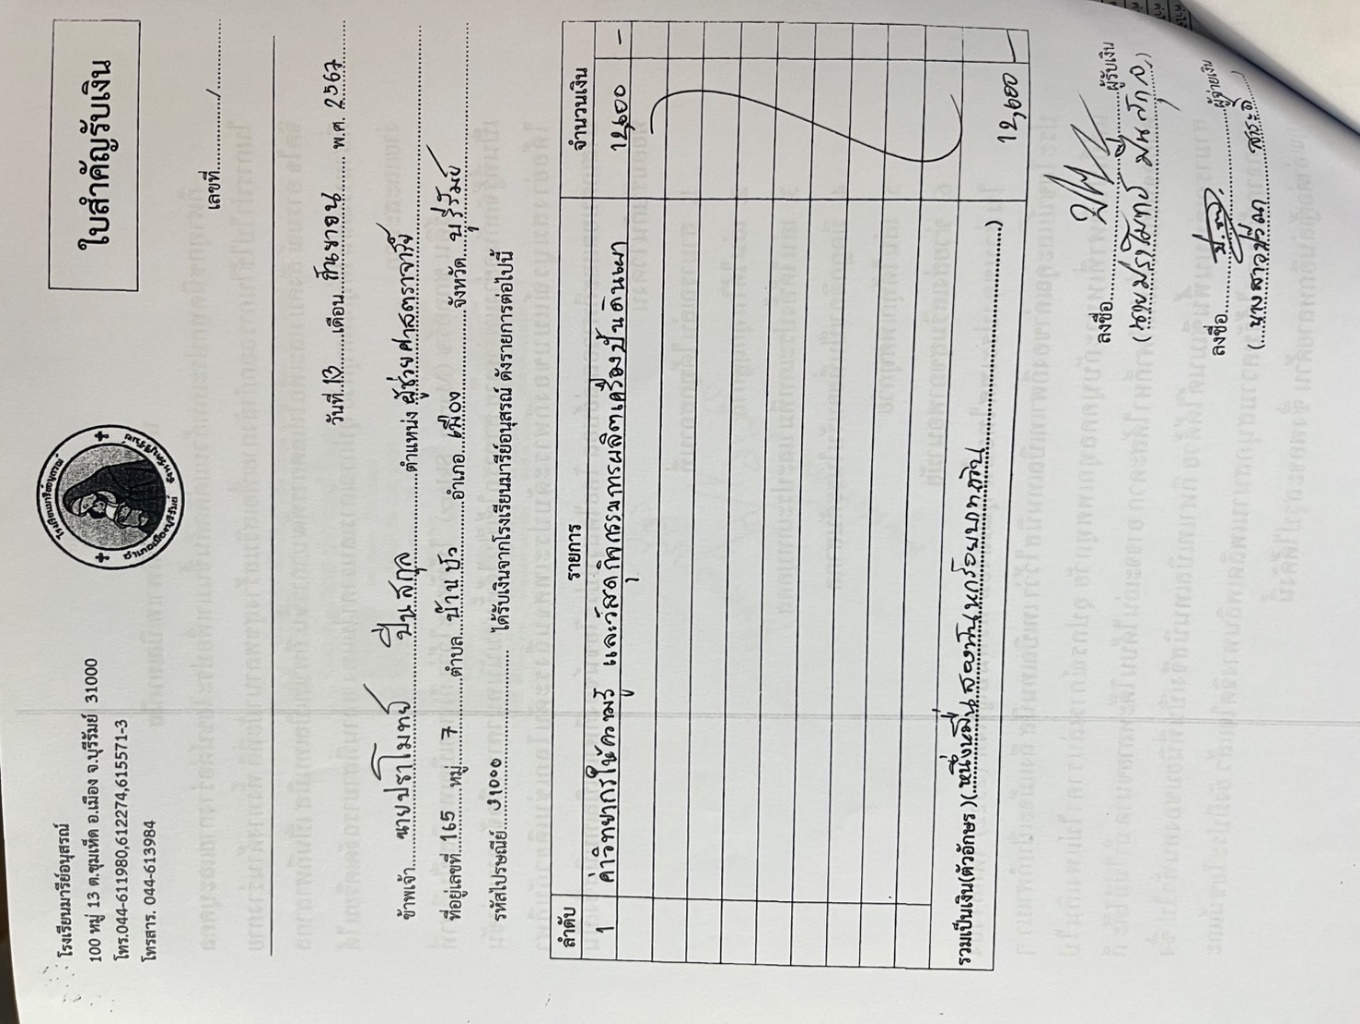 โรงเรียนมารีย์อนุสรณ์
100 หมู่ 13 ต.ชุมเห็ด อ.เมือง จ.บุรีรัมย์ 31000
โทร.044-611980,612274,615571-3
โทรสาร. 044-613984
ใบสำคัญรับเงิน
เลขที่............/............
วันที่..13......เดือน..กันยายน......พ.ศ. 2567
ข้าพเจ้า......นายปราโมทย์ ปีนสกุล ตำแหน่ง ผู้ช่วยศาสตราจารย์
ที่อยู่เลขที่.165 หมู่ 7 ตำบล บ้านบัว อำเภอ เมือง จังหวัด บุรีรัมย์
รหัสไปรษณีย์ 31000 ได้รับเงินจากโรงเรียนมารีย์อนุสรณ์ ดังรายการต่อไปนี้
ลำดับ รายการ จำนวนเงิน
1 ค่าวิทยากรให้ความรู้ และวัสดุกิจกรรมการผลิตเครื่องปั้นดินเผา 12,600 -
รวมเป็นเงิน(ตัวอักษร )(หนึ่งหมื่นสองพันหกร้อยบาทถ้วน) 12,600 -
ลงชื่อ ผู้รับเงิน
(นายปราโมทย์ ปีนสกุล)
ลงชื่อ ผู้จ่ายเงิน
(นางสาว